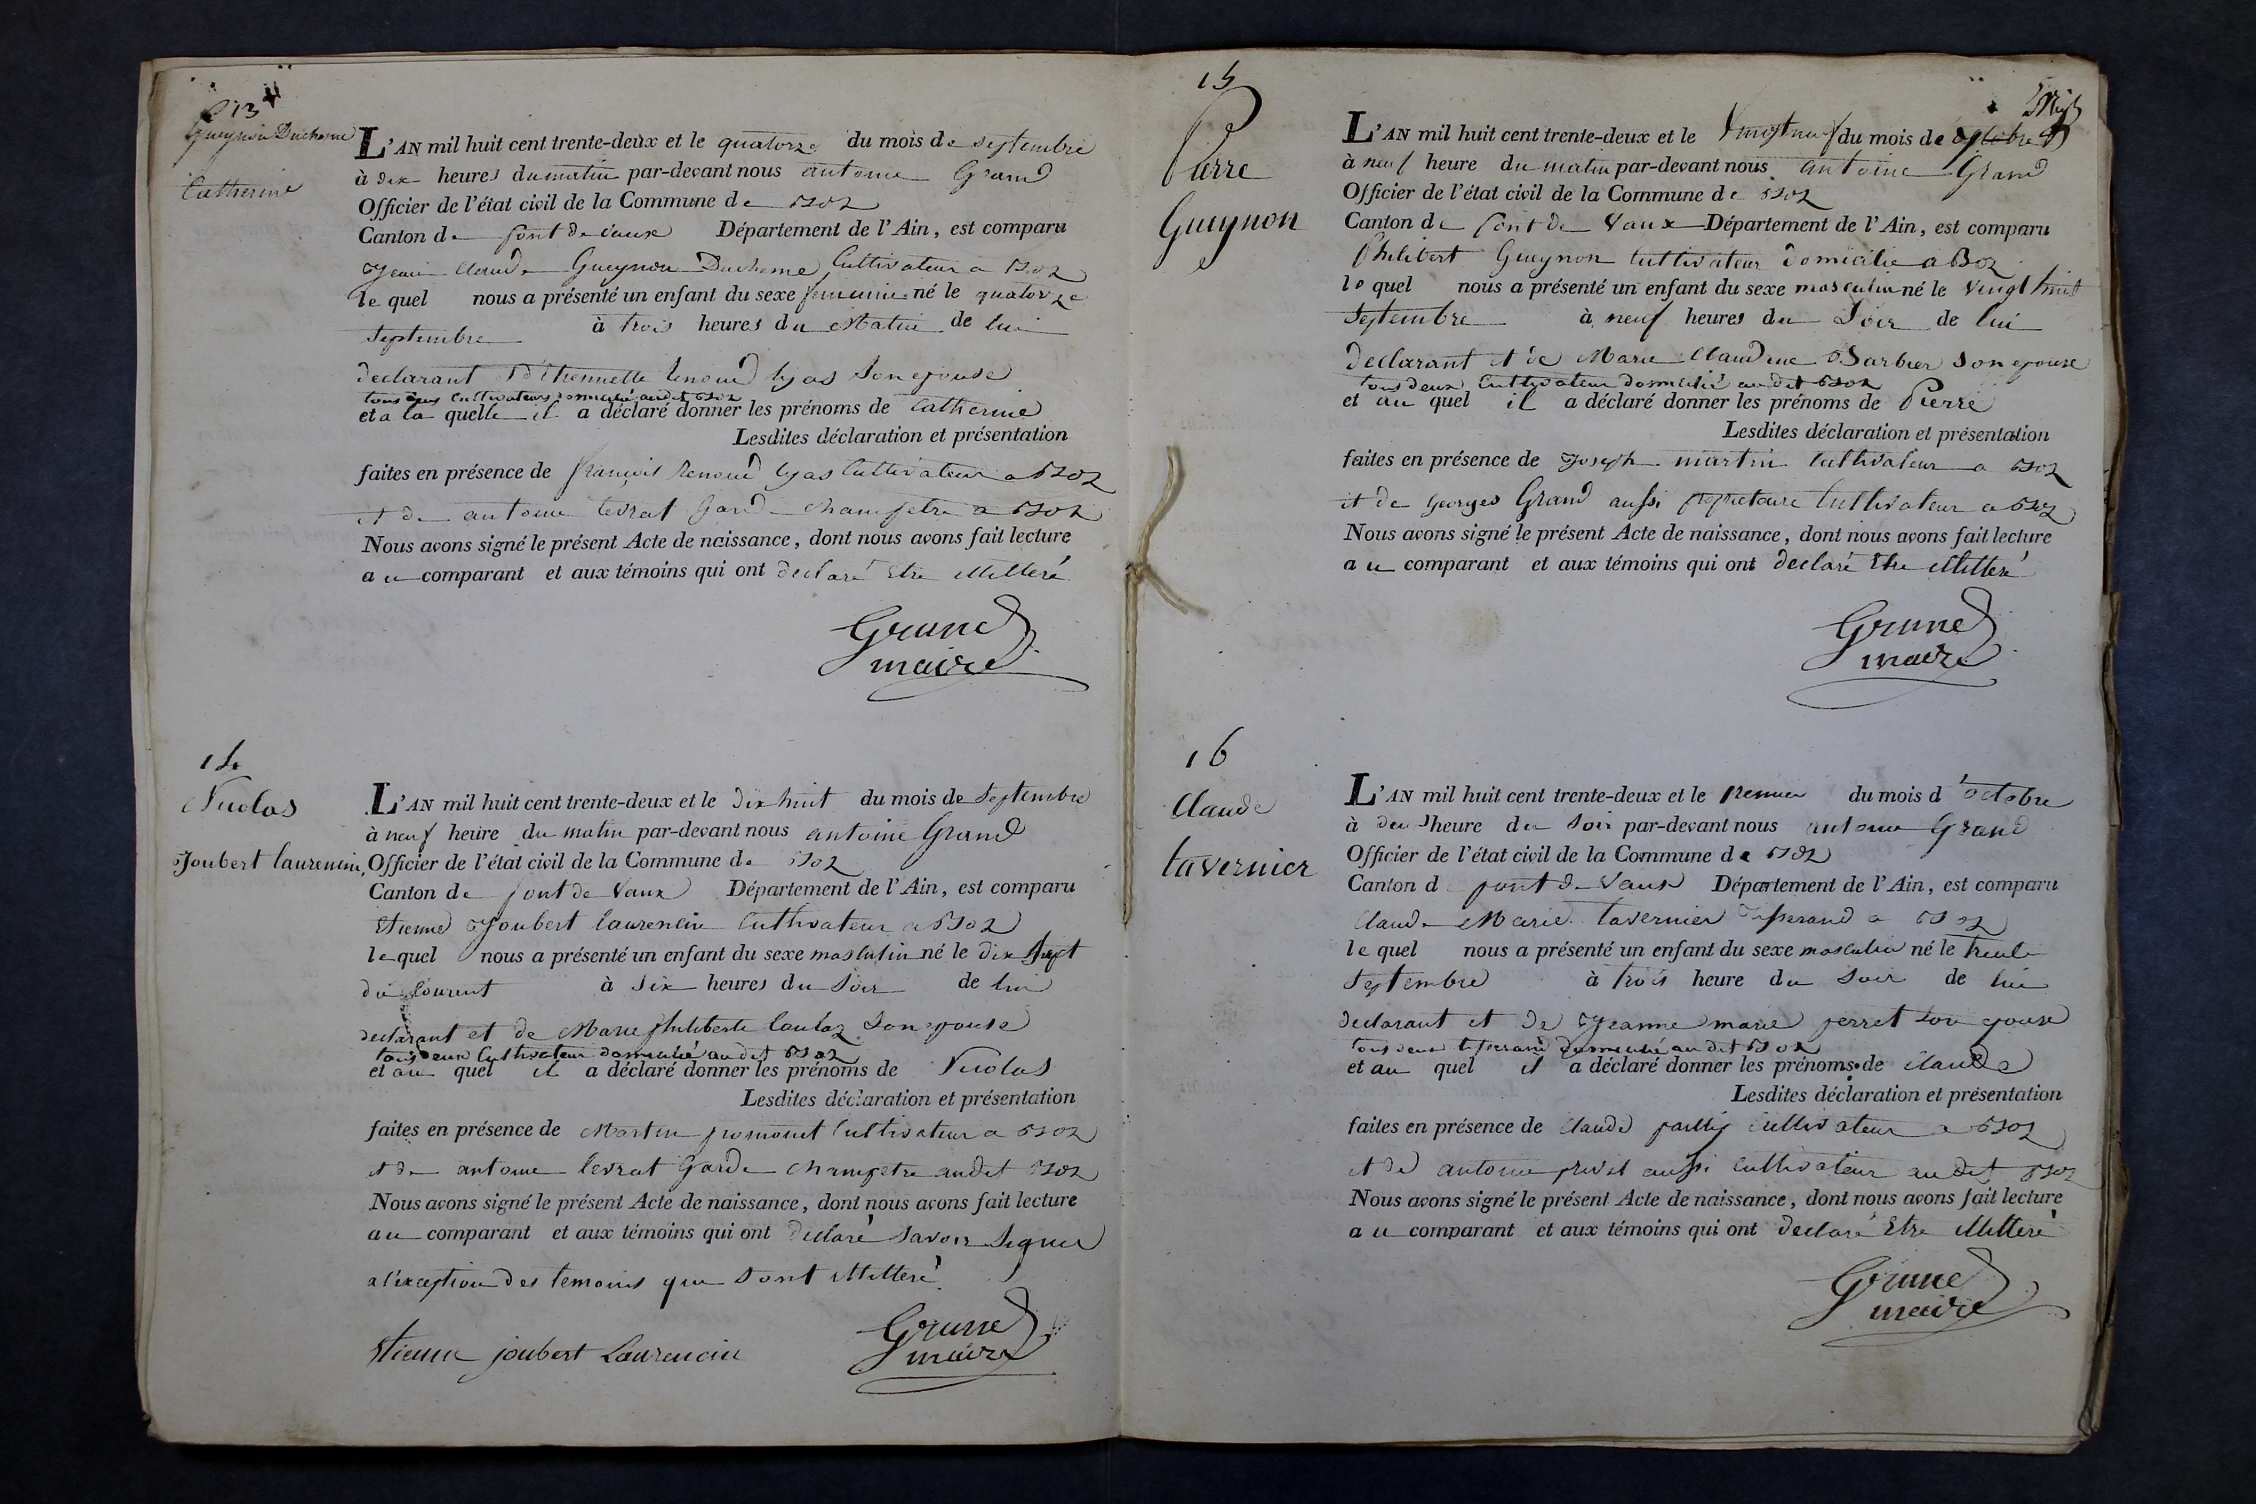 13
Gueynon Duchesne
Catherine
L'AN mil huit cent trente-deux et le quatorze du mois de septembre
à dix heures du matin par-devant nous antoine Grand
Officier de l'état civil de la Commune de Boz
Canton de pont de vaux Département de l'Ain, est comparu
Jean Claude Gueynon Duchesne Cultivateur a Boz
le quel nous a présenté un enfant du sexe feminin né le quatorze
septembre à trois heures du Matin de lui
declarant et d'Etiennette renoud lyas Son epouse
tous deux Cultivateurs domicilié audit Boz
et a la quelle il a déclaré donner les prénoms de Catherine
Lesdites déclaration et présentation
faites en présence de françois Renoud lyas Cultivateur a Boz
et de antoine levrat Gard champetre a Boz
Nous avons signé le présent Acte de naissance, dont nous avons fait lecture
au comparant et aux témoins qui ont declaré Etre illiteré
Grand
maire
14
Nicolas
Joubert laurencin
L'AN mil huit cent trente-deux et le dix huit du mois de Septembre
à neuf heure du matin par-devant nous antoine Grand
Officier de l'état civil de la Commune de Boz
Canton de pont de Vaux Département de l'Ain, est comparu
Etienne Joubert laurencin Cultivateur a Boz
le quel nous a présenté un enfant du sexe masculin né le dix sept
du courent à six heures du Soir de lui
declarant et de Marie philiberte Son epouse
tous deux Cultivateur domicilié audit Boz
et au quel il a déclaré donner les prénoms de Nicolas
Lesdites déclaration et présentation
faites en présence de Martin promonet Cultivateur a Boz
et de antoine levrat Garde champetre audit Boz
Nous avons signé le présent Acte de naissance, dont nous avons fait lecture
au comparant et aux témoins qui ont declaré Savoir Signer
a l'exception des temoins qui Sont illiteré
Etienne joubert Laurencin
Grand
maire
15
Pierre
Gueynon
L'AN mil huit cent trente-deux et le Vingt neuf du mois de
à neuf heure du matin par-devant nous antoine Grand
Officier de l'état civil de la Commune de Boz
Canton de Pont de Vaux Département de l'Ain, est comparu
Philibert Gueynon Cultivateur domicilié a Boz
le quel nous a présenté un enfant du sexe masculin né le Vingt huit
Septembre à neuf heures du Soir de lui
declarant et de Marie Claudine Barbier Son epouse
tous deux Cultivateur domicilié audit Boz
et au quel il a déclaré donner les prénoms de Pierre
Lesdites déclaration et présentation
faites en présence de Joseph martin Cultivateur a Boz
et de Georges Grand aussi propretaire Cultivateur a Boz
Nous avons signé le présent Acte de naissance, dont nous avons fait lecture
au comparant et aux témoins qui ont declaré Etre illiteré
Grand
maire
16
Claude
tavernier
L'AN mil huit cent trente-deux et le premier du mois d'octobre
à deus heure du Soir par-devant nous antoine Grand
Officier de l'état civil de la Commune de Boz
Canton d pont de Vaux Département de l'Ain, est comparu
Claude Marie tavernier tisserand a Boz
le quel nous a présenté un enfant du sexe masculin né le trente
Septembre à trois heure du Soir de lui
declarant et de Jeanne marie perret Son epouse
tous deux tisserand domicilié audit Boz
et au quel il a déclaré donner les prénoms de Claude
Lesdites déclaration et présentation
faites en présence de Claude Cultivateur a Boz
et de antoine aussi Cultivateur audit Boz
Nous avons signé le présent Acte de naissance, dont nous avons fait lecture
au comparant et aux témoins qui ont declaré Etre illiteré
Grand
maire